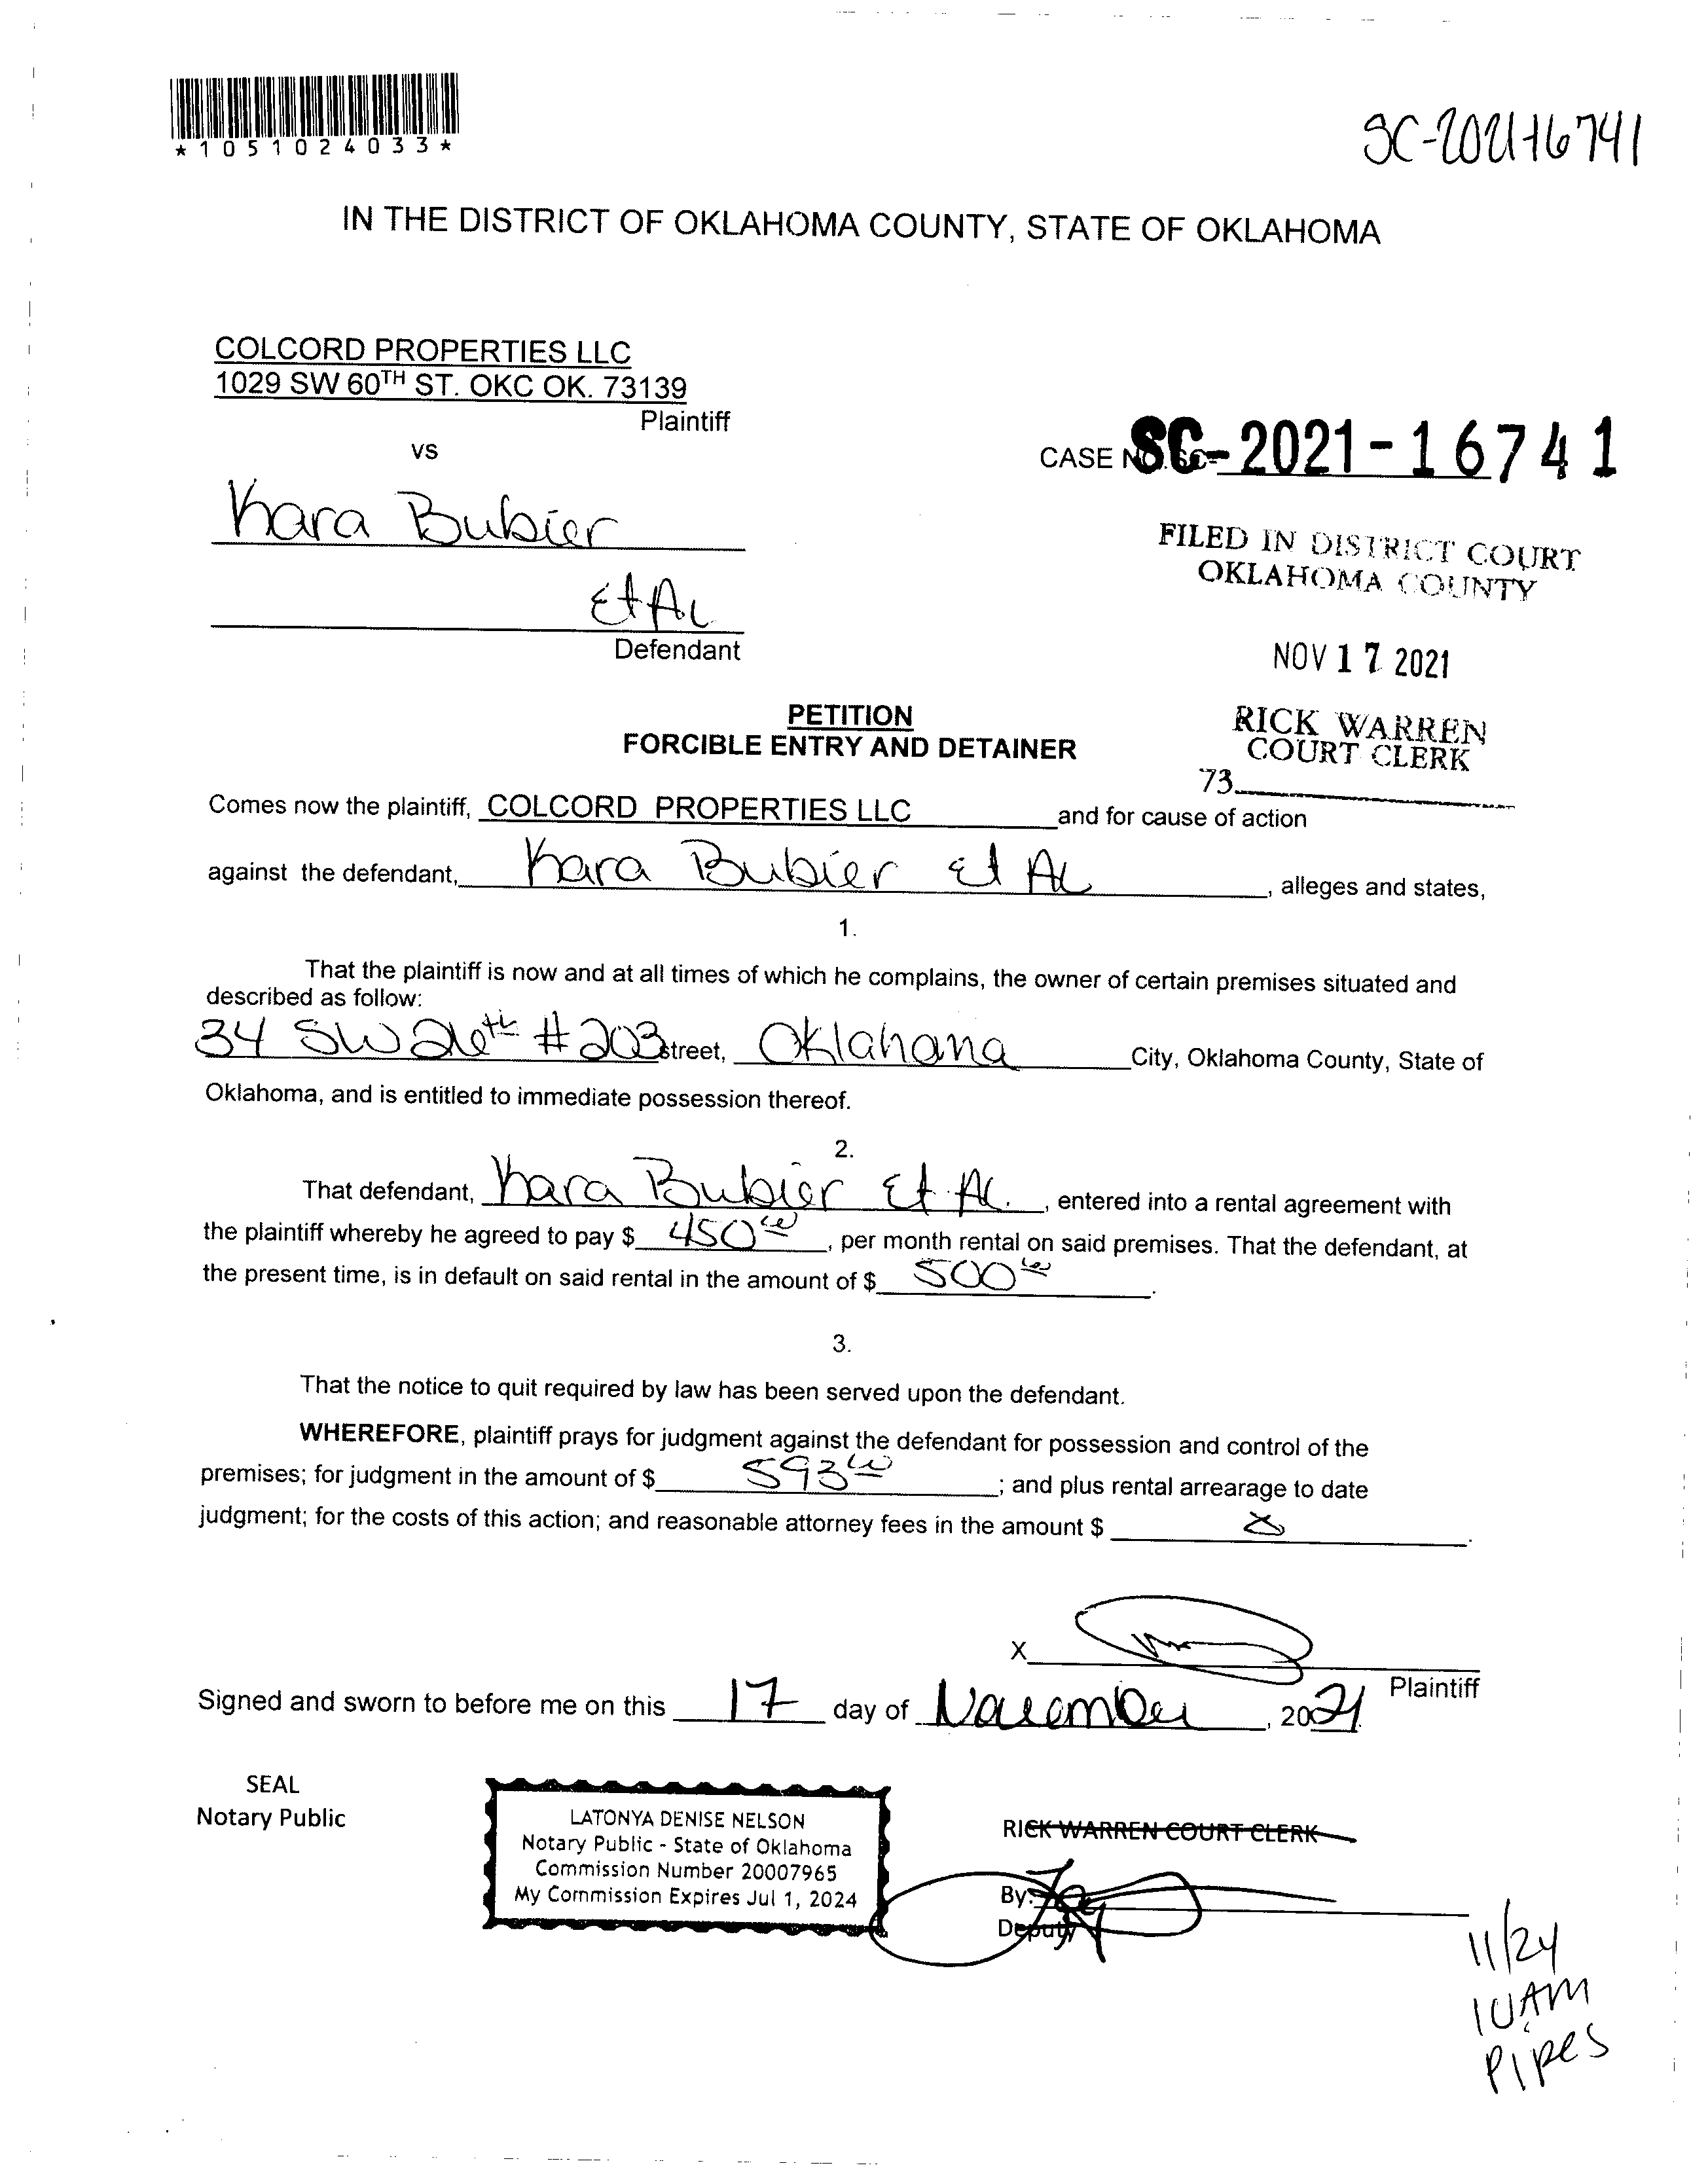 *1051024033*
SC-2021-16741
IN THE DISTRICT OF OKLAHOMA COUNTY, STATE OF OKLAHOMA
COLCORD PROPERTIES LLC
1029 SW 60TH ST. OKC OK. 73139
Plaintiff
vs
CASE NO. SC-SC-2021-16741
Kara Bubier
Et Al
Defendant
FILED IN DISTRICT COURT
OKLAHOMA COUNTY
NOV 17 2021
RICK WARREN
COURT CLERK
73
PETITION
FORCIBLE ENTRY AND DETAINER
Comes now the plaintiff, COLCORD PROPERTIES LLC and for cause of action
against the defendant, Kara Bubier Et Al, alleges and states,
1.
That the plaintiff is now and at all times of which he complains, the owner of certain premises situated and
described as follow:
34 SW 26th #203 street, Oklahoma City, Oklahoma County, State of
Oklahoma, and is entitled to immediate possession thereof.
2.
That defendant, Kara Bubier Et Al., entered into a rental agreement with
the plaintiff whereby he agreed to pay $ 450 00, per month rental on said premises. That the defendant, at
the present time, is in default on said rental in the amount of $ 500 00.
3.
That the notice to quit required by law has been served upon the defendant.
WHEREFORE, plaintiff prays for judgment against the defendant for possession and control of the
premises; for judgment in the amount of $ 593 00; and plus rental arrearage to date
judgment; for the costs of this action; and reasonable attorney fees in the amount $
X
Plaintiff
Signed and sworn to before me on this 17 day of November, 2021
SEAL
Notary Public
LATONYA DENISE NELSON
Notary Public - State of Oklahoma
Commission Number 20007965
My Commission Expires Jul 1, 2024
RICK WARREN COURT CLERK
By:
Deputy
11/24
10AM
Pipes